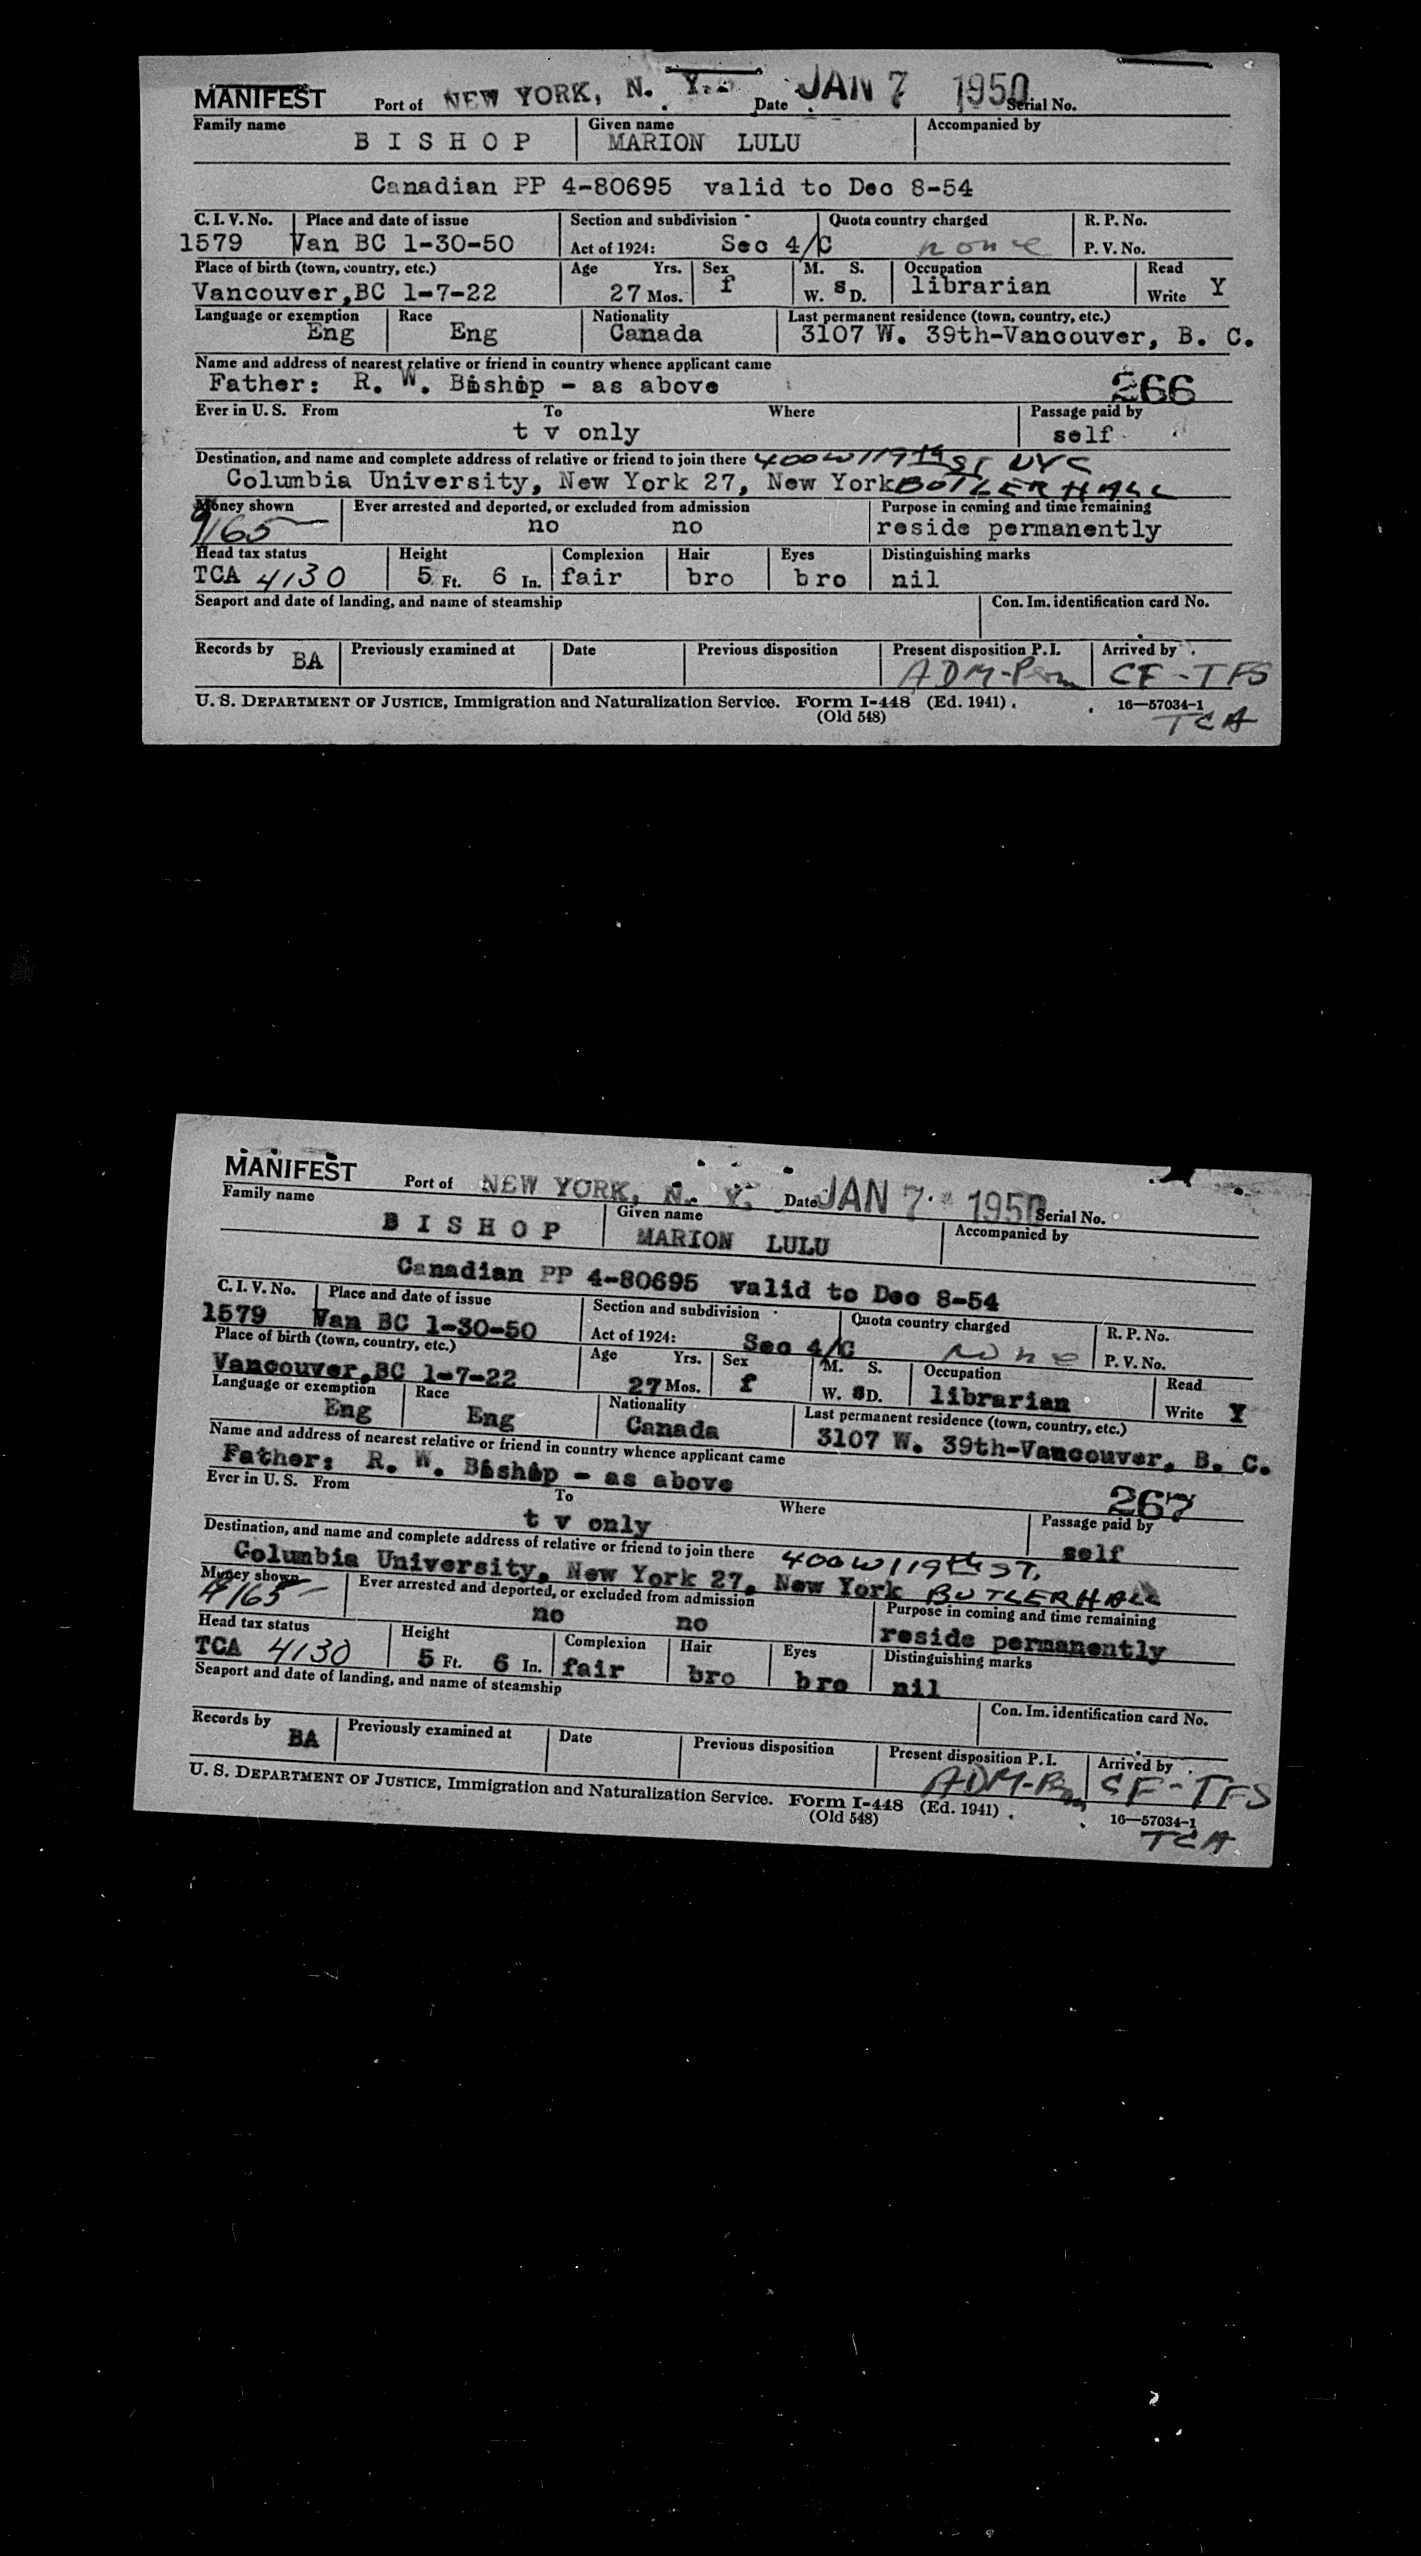 MANIFEST Port of NEW YORK, N. Y. Date JAN 7 1950 Serial No.
Family name Given name Accompanied by
BISHOP MARION LULU
Canadian PP 4-80695 valid to Dec 8-54
C. I. V. No. Place and date of issue Section and subdivision Quota country charged R. P. No.
1579 Van BC 1-30-50 Act of 1924: Sec 4/C none P. V. No.
Place of birth (town, country, etc.) Age Yrs. Sex M. S. Occupation Read
Vancouver,BC 1-7-22 27 Mos. f W. s D. librarian Write Y
Language or exemption Race Nationality Last permanent residence (town, country, etc.)
Eng Eng Canada 3107 W. 39th-Vancouver, B. C.
Name and address of nearest relative or friend in country whence applicant came
Father: R. W. Bishop - as above 266
Ever in U. S. From To Where Passage paid by
t v only self
Destination, and name and complete address of relative or friend to join there 400 W 119th ST NYC
Columbia University, New York 27, New York BUTLER HALL
Money shown Ever arrested and deported, or excluded from admission Purpose in coming and time remaining
165 no no reside permanently
Head tax status Height Complexion Hair Eyes Distinguishing marks
TCA 4130 5 Ft. 6 In. fair bro bro nil
Seaport and date of landing, and name of steamship Con. Im. identification card No.
Records by BA Previously examined at Date Previous disposition Present disposition P. I. Arrived by
ADM-Perm CF-TFS
U. S. DEPARTMENT OF JUSTICE, Immigration and Naturalization Service. Form I-448 (Ed. 1941) 16—57034-1
(Old 548) TCA
MANIFEST Port of NEW YORK, N. Y. Date JAN 7 1950 Serial No.
Family name Given name Accompanied by
BISHOP MARION LULU
Canadian PP 4-80695 valid to Dec 8-54
C. I. V. No. Place and date of issue Section and subdivision Quota country charged R. P. No.
1579 Van BC 1-30-50 Act of 1924: Sec 4/C none P. V. No.
Place of birth (town, country, etc.) Age Yrs. Sex M. S. Occupation Read
Vancouver,BC 1-7-22 27 Mos. f W. s D. librarian Write Y
Language or exemption Race Nationality Last permanent residence (town, country, etc.)
Eng Eng Canada 3107 W. 39th-Vancouver, B. C.
Name and address of nearest relative or friend in country whence applicant came
Father: R. W. Bishop - as above 267
Ever in U. S. From To Where Passage paid by
t v only self
Destination, and name and complete address of relative or friend to join there 400 W 119th ST.
Columbia University, New York 27, New York BUTLER HALL
Money shown Ever arrested and deported, or excluded from admission Purpose in coming and time remaining
165 no no reside permanently
Head tax status Height Complexion Hair Eyes Distinguishing marks
TCA 4130 5 Ft. 6 In. fair bro bro nil
Seaport and date of landing, and name of steamship Con. Im. identification card No.
Records by BA Previously examined at Date Previous disposition Present disposition P. I. Arrived by
ADM-Perm CF-TFS
U. S. DEPARTMENT OF JUSTICE, Immigration and Naturalization Service. Form I-448 (Ed. 1941) 16—57034-1
(Old 548) TCA